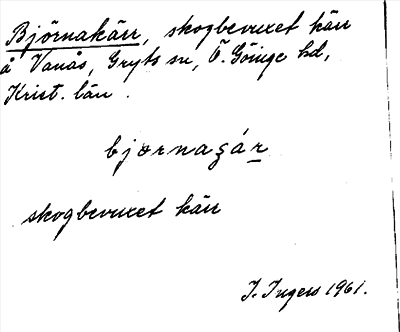 Björnakärr, skogbevuxet kärr
å Vanås, Gryts sn, Ö. Göinge hd,
Krist. län.
bjørnagár
skogbevuxet kärr
I. Ingers 1961.